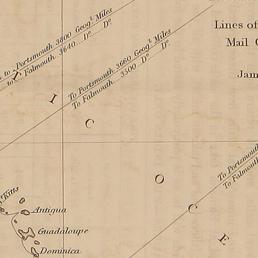 Lines of
Mail
Jam
to Portsmouth 3600 Geog.l Miles
to Falmouth 3640 Do Do
To Portsmouth 3660 Geog.l Miles
To Falmouth 3500 Do Do
T I C
To Portsmouth
To Falmouth
O C E
Kitts
Antigua
Guadaloupe
Dominica